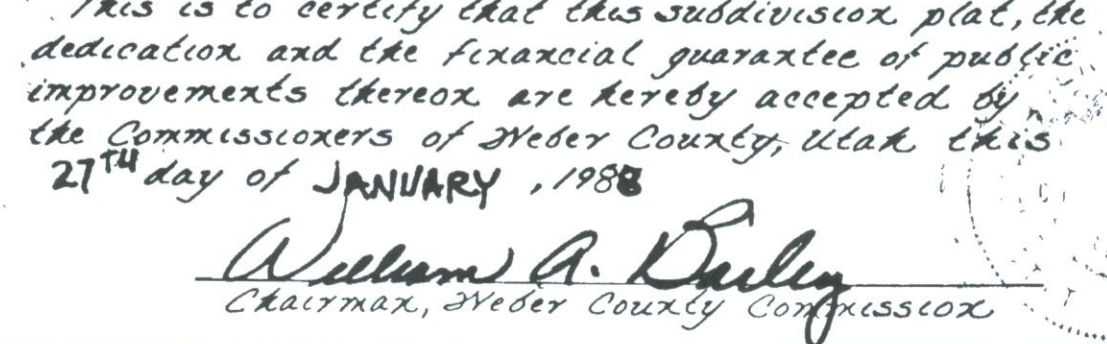 This is to certify that this subdivision plat, the
dedication and the financial guarantee of public
improvements thereon are hereby accepted by
the Commissioners of Weber County, Utah this
27TH day of JANUARY, 1988
William A. Bailey
Chairman, Weber County Commission